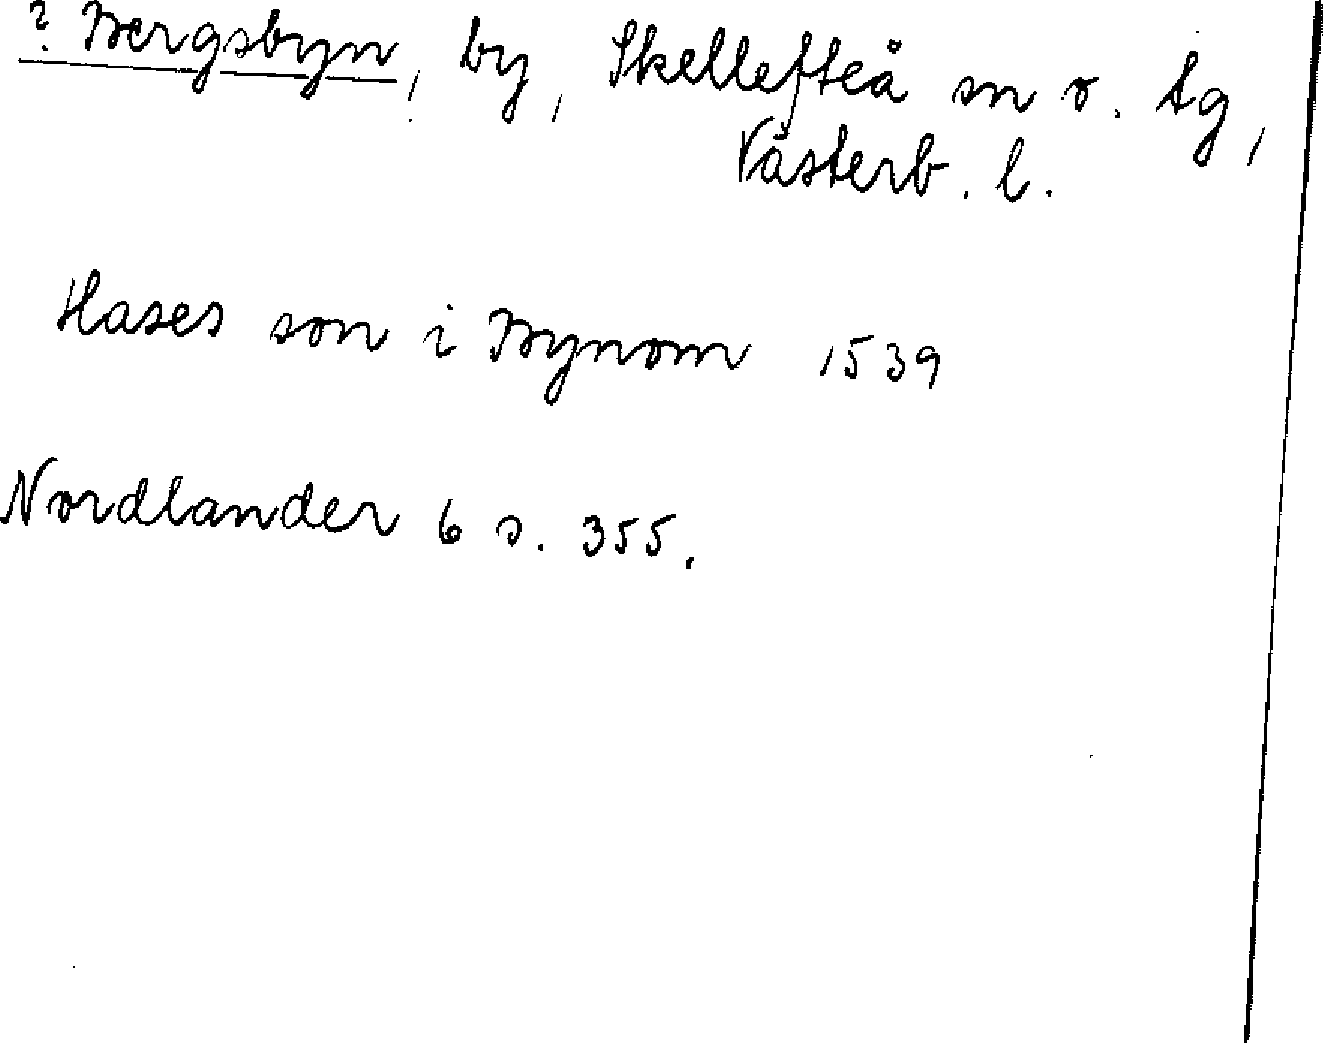 ? Bergsbyn, by, Skellefteå sn o. tg,
Västerb. l.
Hases son i Bynom 1539
Nordlander 6 s. 355.